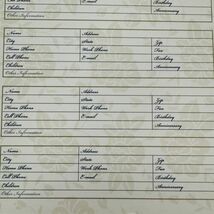 Cell Phone E-mail Birthday
Children Anniversary
Other Information
Name Address
City State Zip
Home Phone Work Phone Fax
Cell Phone E-mail Birthday
Children Anniversary
Other Information
Name Address
City State Zip
Home Phone Work Phone Fax
Cell Phone E-mail Birthday
Children Anniversary
Other Information
Name Address
City State Zip
Home Phone Work Phone Fax
Cell Phone E-mail Birthday
Children Anniversary
Other Information